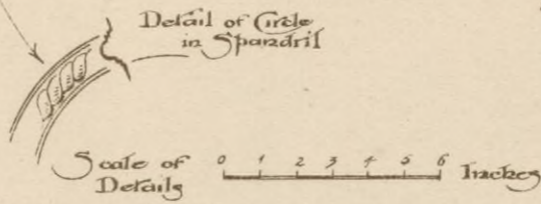 Detail of Circle
in Spandril
Scale of
Details
0 1 2 3 4 5 6 Inches